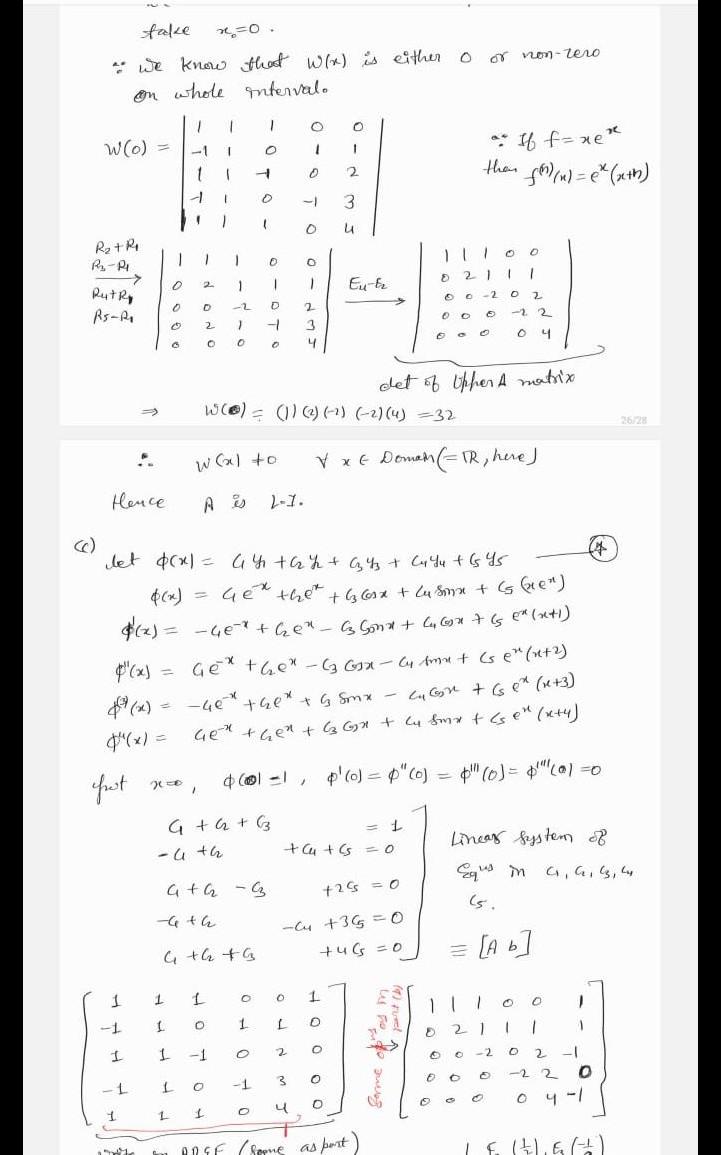 take x₀=0.
∵ we know that W(x) is either 0 or non-zero
on whole interval.
W(0) = | 1 1 1 0 0 |
| -1 1 0 1 1 |
| 1 1 -1 0 2 |
| -1 1 0 -1 3 |
| 1 1 1 0 4 |
∵ If f = xeˣ
then f⁽ⁿ⁾(x) = eˣ(x+n)
R₂+R₁
R₃-R₁
R₄+R₁
R₅-R₁
| 1 1 1 0 0 |
| 0 2 1 1 1 |
| 0 0 -2 0 2 |
| 0 2 1 -1 3 |
| 0 0 0 0 4 |
E₄-E₂
| 1 1 1 0 0 |
| 0 2 1 1 1 |
| 0 0 -2 0 2 |
| 0 0 0 -2 2 |
| 0 0 0 0 4 |
det of Upper Δ matrix
⇒ W(0) = (1)(2)(-2)(-2)(4) = 32
26/28
∴ W(x) ≠ 0 ∀ x ∈ Domain (= ℝ, here)
Hence A is L.I.
(c)
let ϕ(x) = C₁y₁ + C₂y₂ + C₃y₃ + C₄y₄ + C₅y₅
ϕ(x) = C₁e⁻ˣ + C₂eˣ + C₃ Cosx + C₄ Sinx + C₅ (xeˣ)
ϕ'(x) = -C₁e⁻ˣ + C₂eˣ - C₃ Sinx + C₄ Cosx + C₅ eˣ(x+1)
ϕ''(x) = C₁e⁻ˣ + C₂eˣ - C₃ Cosx - C₄ Sinx + C₅ eˣ(x+2)
ϕ⁽³⁾(x) = -C₁e⁻ˣ + C₂eˣ + C₃ Sinx - C₄ Cosx + C₅ eˣ(x+3)
ϕ⁴(x) = C₁e⁻ˣ + C₂eˣ + C₃ Cosx + C₄ Sinx + C₅ eˣ(x+4)
put x=0, ϕ(0)=1, ϕ'(0) = ϕ''(0) = ϕ'''(0) = ϕ''''(0) = 0
C₁ + C₂ + C₃ = 1
-C₁ + C₂ + C₄ + C₅ = 0
C₁ + C₂ - C₃ + 2C₅ = 0
-C₁ + C₂ - C₄ + 3C₅ = 0
C₁ + C₂ + C₃ + 4C₅ = 0
Linear System of
Equs in C₁, C₂, C₃, C₄
C₅.
≡ [A b]
[ 1 1 1 0 0 1 ]
[ -1 1 0 1 1 0 ]
[ 1 1 -1 0 2 0 ]
[ -1 1 0 -1 3 0 ]
[ 1 1 1 0 4 0 ]
Same
[ 1 1 1 0 0 1 ]
[ 0 2 1 1 1 1 ]
[ 0 0 -2 0 2 -1 ]
[ 0 0 0 -2 2 0 ]
[ 0 0 0 0 4 -1 ]
(Same as part)